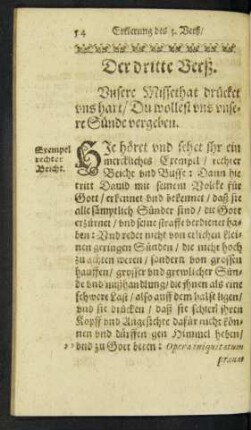 54 Erklerung des 3. Verß/
Der dritte Verß.
Vnsere Missethat drücket
vns hart/ Du wollest vns vnse-
re Sünde vergeben.
Exempel
rechter
Beicht.
HIe höret vnd sehet ihr ein
merckliches Exempel / rechter
Beicht vnd Busse : Dann hie
tritt Dauid mit seinem Volcke für
Gott / erkennet vnd bekennet / daß sie
alle sämptlich Sünder sind / die Gott
erzürnet / vnd seine straffe verdienet ha-
ben : Vnd redet nicht von etlichen klei-
nen geringen Sünden / die nicht hoch
zu achten weren / sondern von grossen
hauffen / grosser vnd grewlicher Sün-
de vnd mißhandlung/ die ihnen als eine
schwere Last / also auff dem halse ligen/
vnd sie drücken / daß sie schier ihren
Kopff vnd Angesichte dafür nicht kön-
nen vnd dürffen gen Himmel heben/
vnd zu Gott beten : Opera iniquitatum
præua